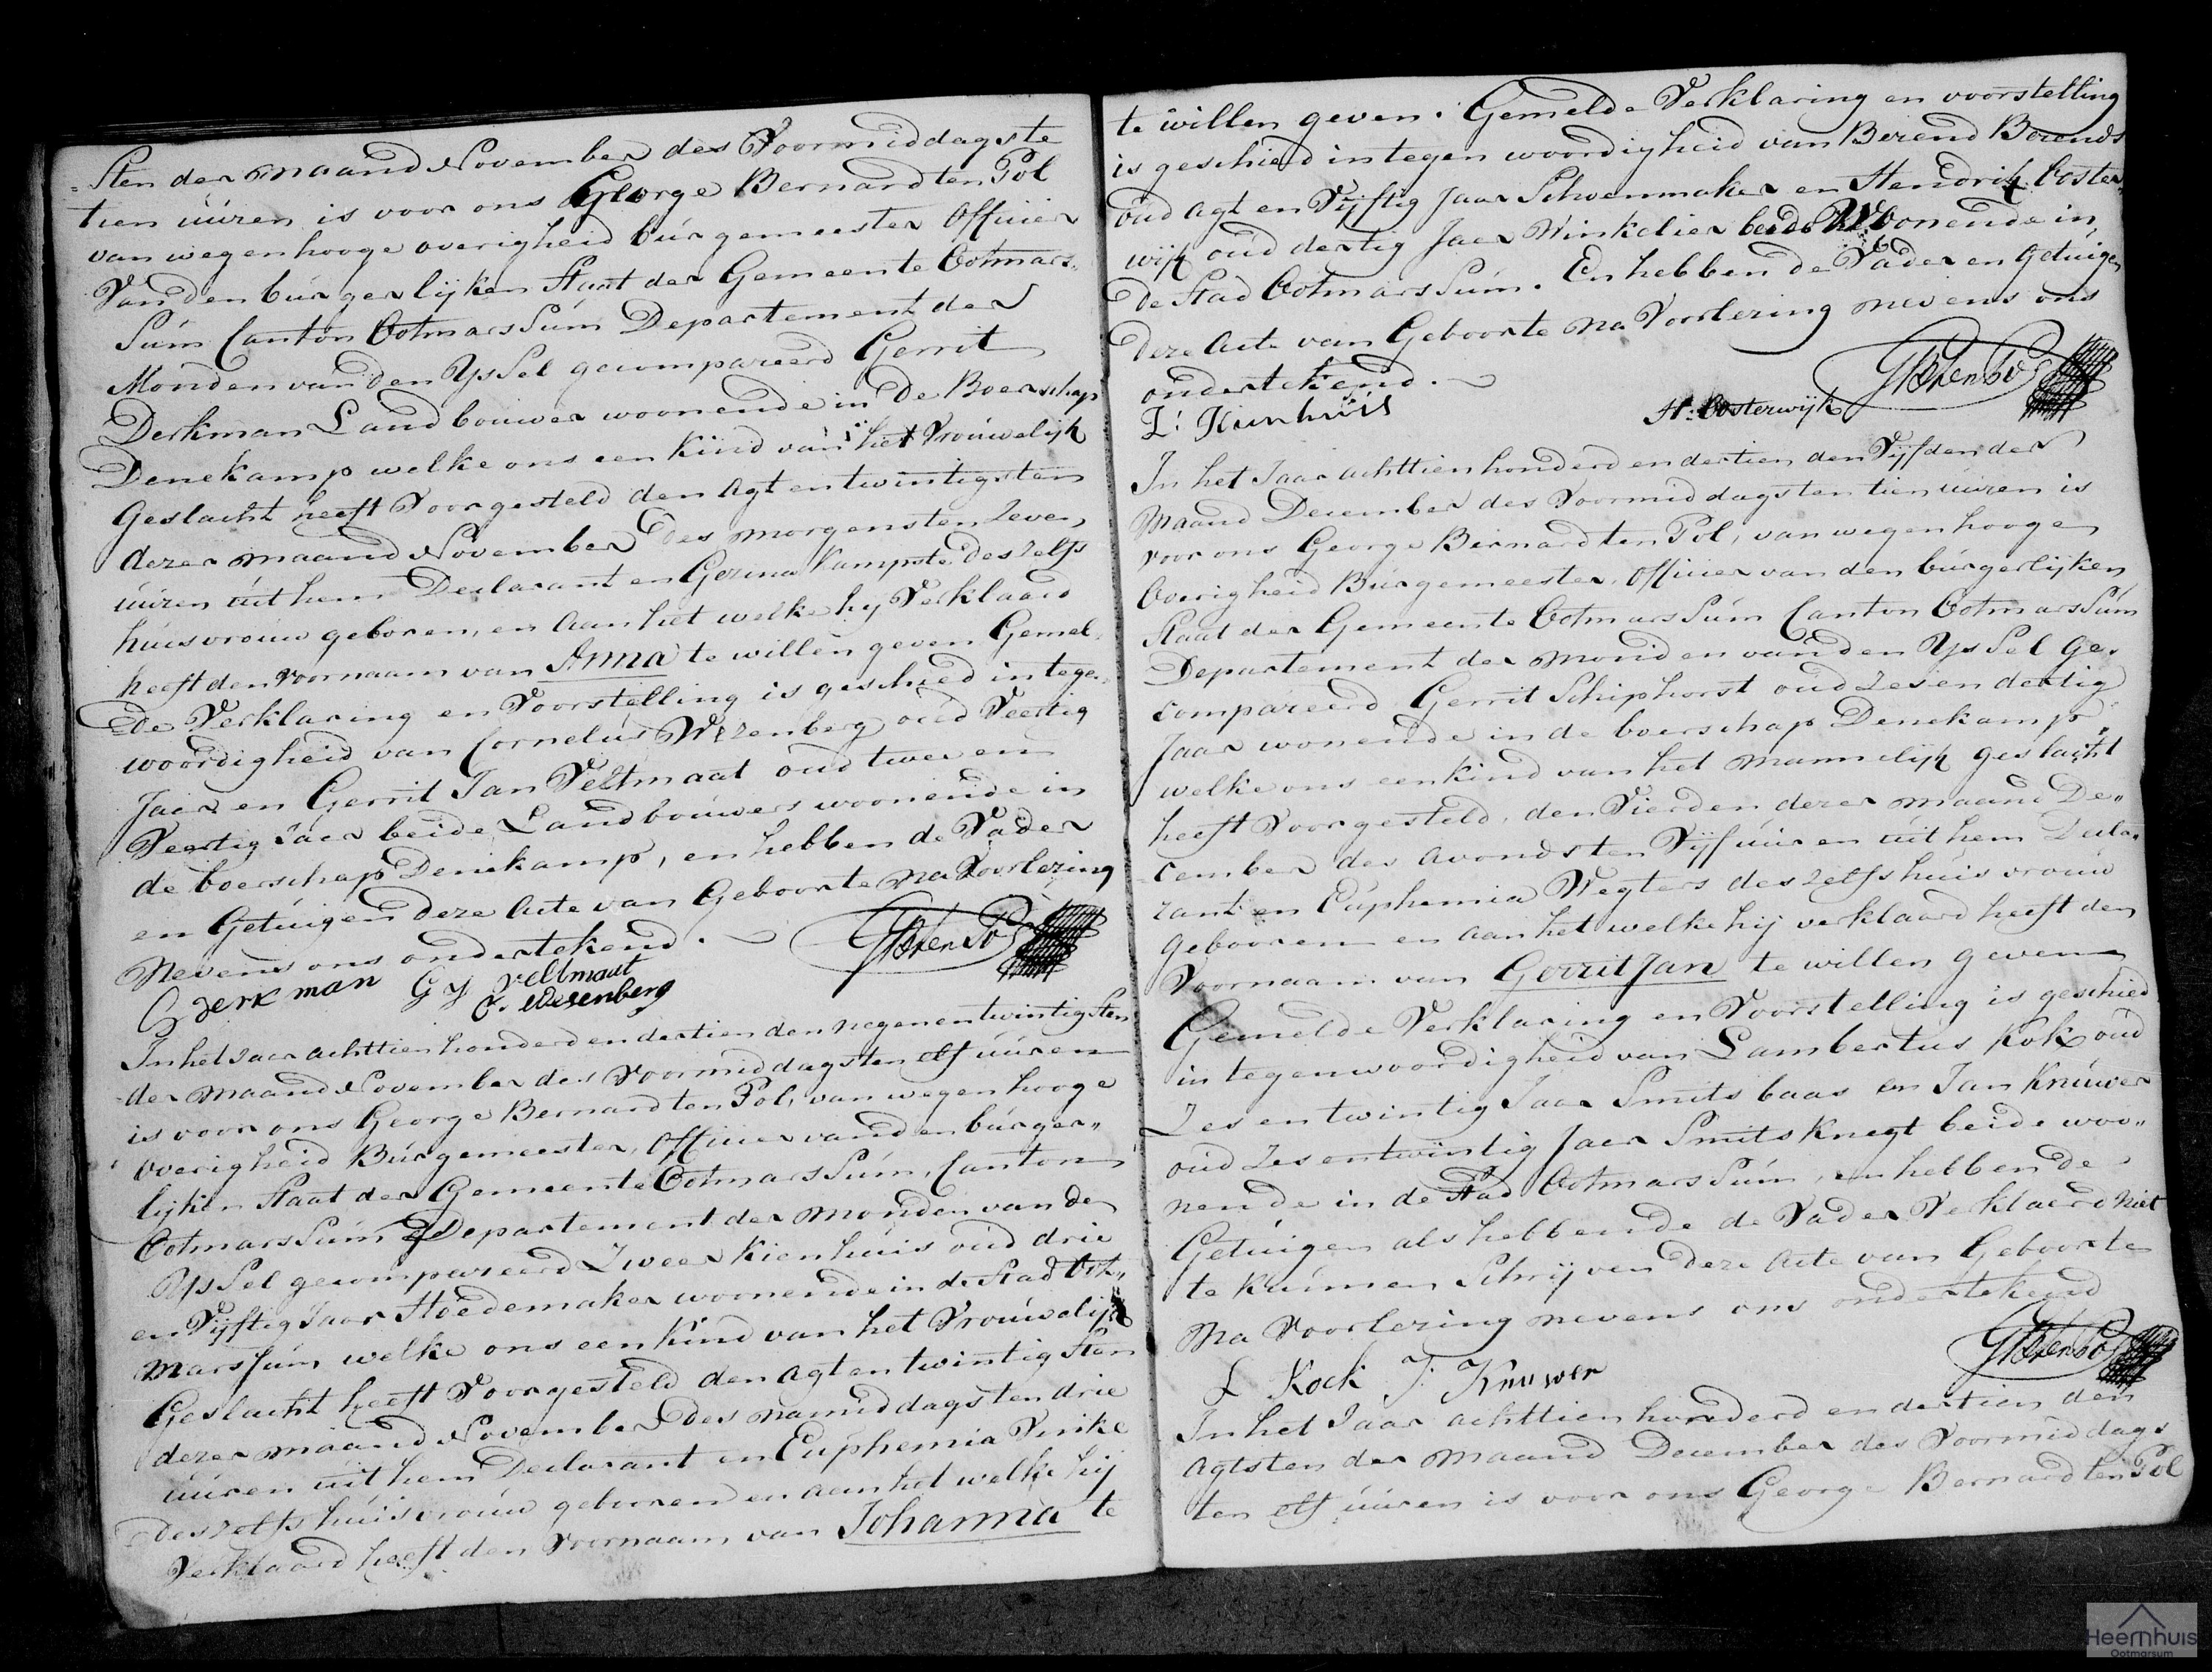 =sten der maand November des Voormiddags te
tien uuren is voor ons George Bernard ten Pol
van wegen hooge overigheid burgemeester Officier
Van den burgerlijken Staat der Gemeente Ootmars„
Sum Canton Ootmarssum Departement der
Monden van den Yssel gecompareerd Gerrit
Derkman Landbouwer woonende in De Boerschap
Denekamp welke ons een Kind van het Vrouwelijk
Geslacht heeft Voorgesteld den Agt en twintigsten
dezer maand November des morgens ten Zeven
uuren uit hem Declarant en Gezina Kampste deszelfs
huisvrouw geboren, en Aan het welke hy Verklaard
heeft den voornaam van Anna te willen geven Gemel„
De Verklaring en Voorstelling is geschied in tegen„
woordigheid van Cornelus Wezenberg oud Veertig
Jaer en Gerrit Jan Veltmaat oud twee en
Veertig Jaer beide Landbouwers woonende in
de boerschap Denekamp, en hebben de Vader
en Getuigen deze Acte van Geboorte na Voorlezing
Nevens ons ondertekend.
G derkman G J veltmaat GBtenPol
C. Wesenberg
In het Jaer achttien honderd en dertien den negen en twintigsten
der maand November des Voormiddags ten elf uuren
is voor ons George Bernard ten Pol, van wegen hooge
Overigheid Burgemeester, Officier van den burger„
lijken Staat der Gemeente Ootmarssum, Canton
Ootmarssum Departement der monden van den
Yssel gecompareerd Zweer Kienhuis oud drie
en Vijftig Jaar Hoedemaker woonende in de Stad Oot„
marssum welke ons een Kind van het Vrouwelijk
Geslacht heeft Voorgesteld den Agt en twintigsten
dezer maand November des namiddags ten drie
uuren uit hem Declarant en Euphemia Vinke
deszelfs huisvrouw geboren en aan het welke hij
Verklaard heeft den voornaam van Johanna te
te willen geven. Gemelde Verklaring en voorstelling
is geschied in tegen woordigheid van Berend Berends
oud agt en Vijftig Jaar Schoenmaker en Hendrik Ooster„
wijk oud dertig Jaer Winkelier beide Woonende in
de Stad Ootmarssum. En hebben de Vader en Getuigen
deze Acte van Geboorte na Voorlezing nevens ons
ondertekend.
Z: Kienhuis H: Oosterwijk GBtenPol
In het Jaar achttien honderd en dertien den Vijfden der
Maand December des Voormiddags ten tien uuren is
voor ons George Bernard ten Pol, van wegen hooge
Overigheid Burgemeester, Officier van den burgerlijken
Staat der Gemeente Ootmarssum Canton Ootmarssum
Departement der monden van den Yssel Ge„
compareerd Gerrit Schiphorst oud Zes en dertig
Jaar wonende in de boerschap Denekamp
welke ons een kind van het mannelijk geslacht
heeft Voorgesteld, den Vierden dezer maand De„
cember des Avonds ten Vijf uuren uit hem Decla„
rant en Euphemia Wegters deszelfs huisvrouw
gebooren en aan het welke hij verklaard heeft den
Voornaam van Gerrit Jan te willen geven
Gemelde Verklaring en Voorstelling is geschied
in tegenwoordigheid van Lambertus Kok oud
Zes en twintig Jaar Smits baas en Jan Knuwer
oud Zes en twintig Jaer Smits Knegt beide woo„
nende in de Stad Ootmarssum, en hebben de
Getuigen als hebbende de Vader Verklaerd niet
te kunnen Schrijven deze Acte van Geboorte
Na Voorlezing nevens ons ondertekend
L Kock J: Knuwer GBtenPol
In het Jaar achttien honderd en dertien den
Agtsten der maand December des Voormiddags
ten elf uuren is voor ons George Bernard ten Pol
Heemhuis
Ootmarsum